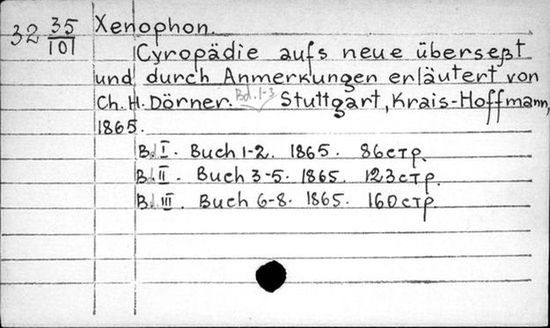 32 35/101 Xenophon.
Cyropädie aufs neue überseßt
und durch Anmerkungen erläutert von
Ch. H. Dörner. Bd. 1-3 Stuttgart, Krais-Hoffmann,
1865.
Bd. I. Buch 1-2. 1865. 86 стр.
Bd. II. Buch 3-5. 1865. 123 стр.
Bd. III. Buch 6-8. 1865. 160 стр.